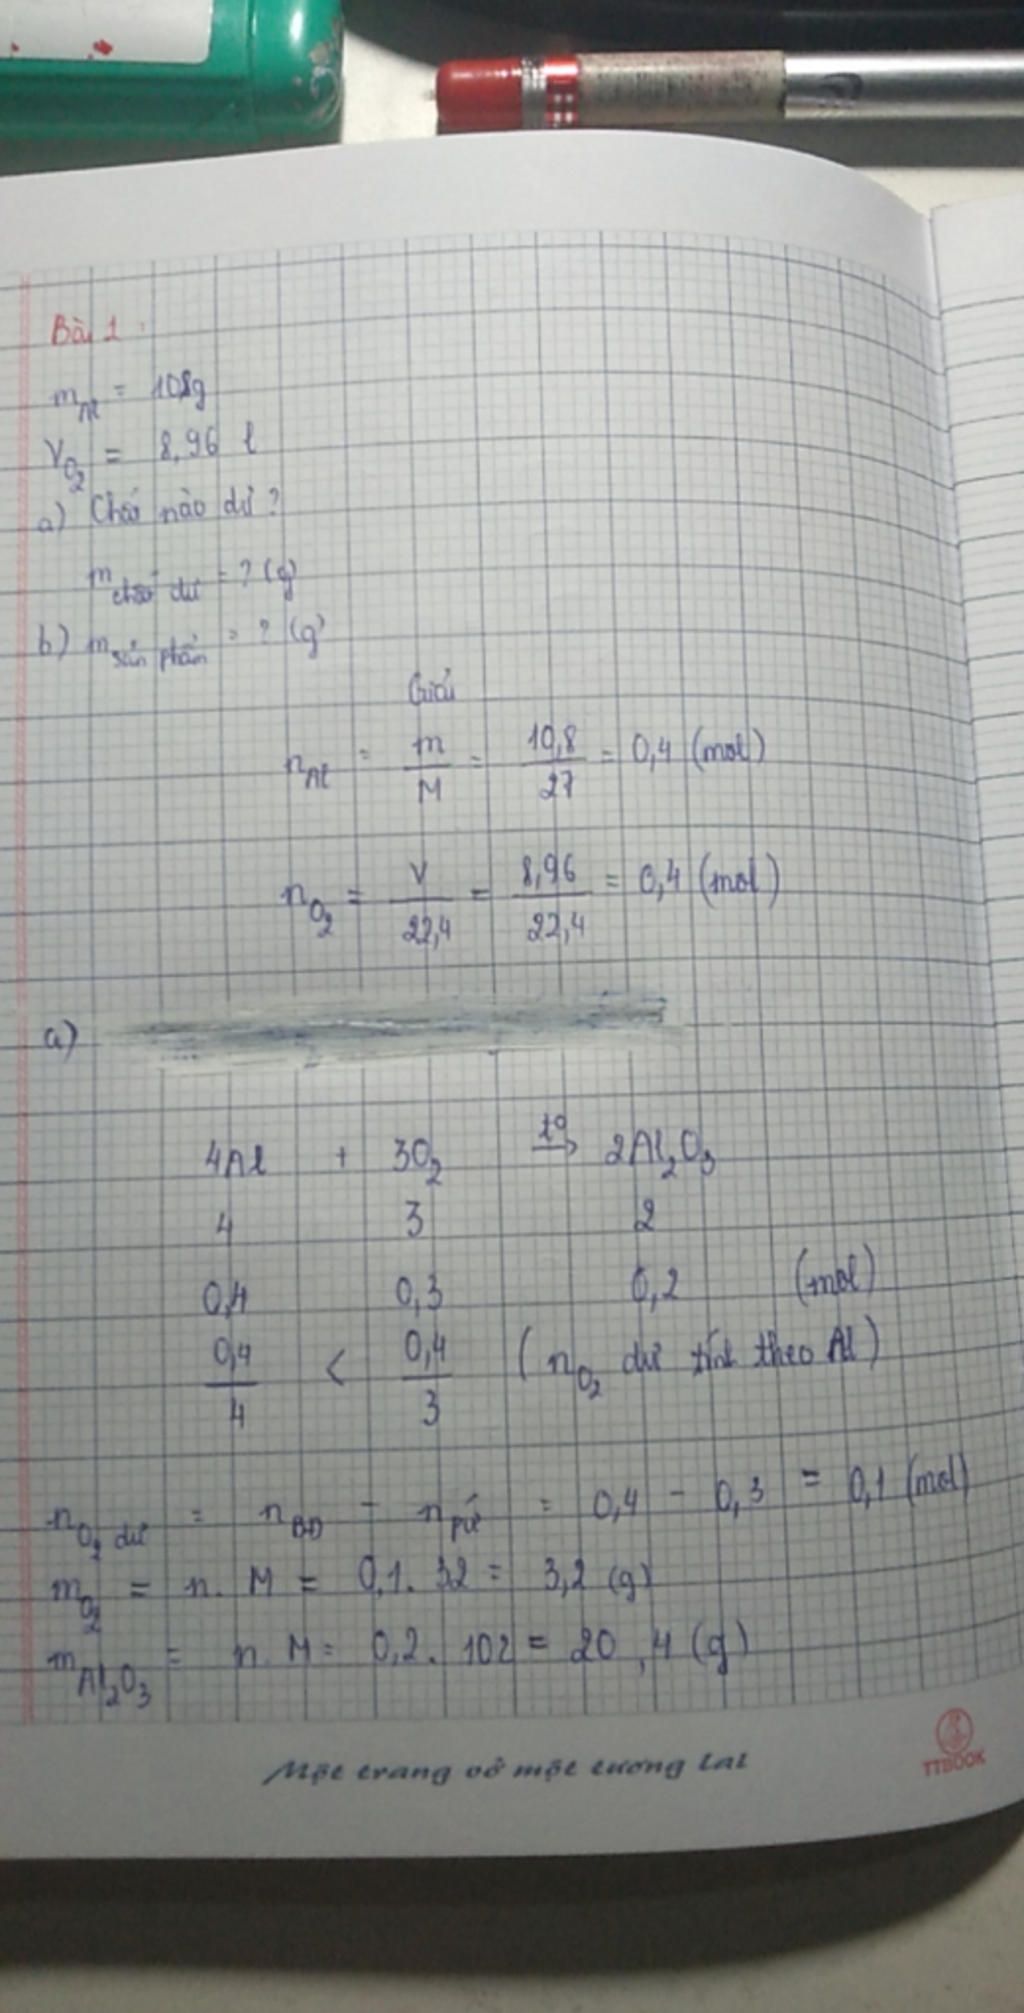 Bài 1:
mAl = 10,8g
VO2 = 8,96 l
a) Chất nào dư ?
mchất dư = ? (g)
b) msản phẩm = ? (g)
Giải
nAl = m/M = 10,8/27 = 0,4 (mol)
nO2 = V/22,4 = 8,96/22,4 = 0,4 (mol)
a)
4Al + 3O2 t°→ 2Al2O3
4 3 2
0,4 0,3 0,2 (mol)
0,4/4 < 0,4/3 (nO2 dư tính theo Al)
nO2 dư = nBĐ - npứ = 0,4 - 0,3 = 0,1 (mol)
mO2 = n. M = 0,1. 32 = 3,2 (g)
mAl2O3 = n. M = 0,2. 102 = 20,4 (g)
Một trang vở một tương lai
TTBOOK